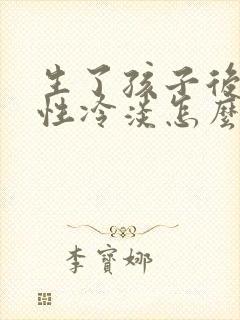 生了孩子後
性冷淡怎麼
李寶娜